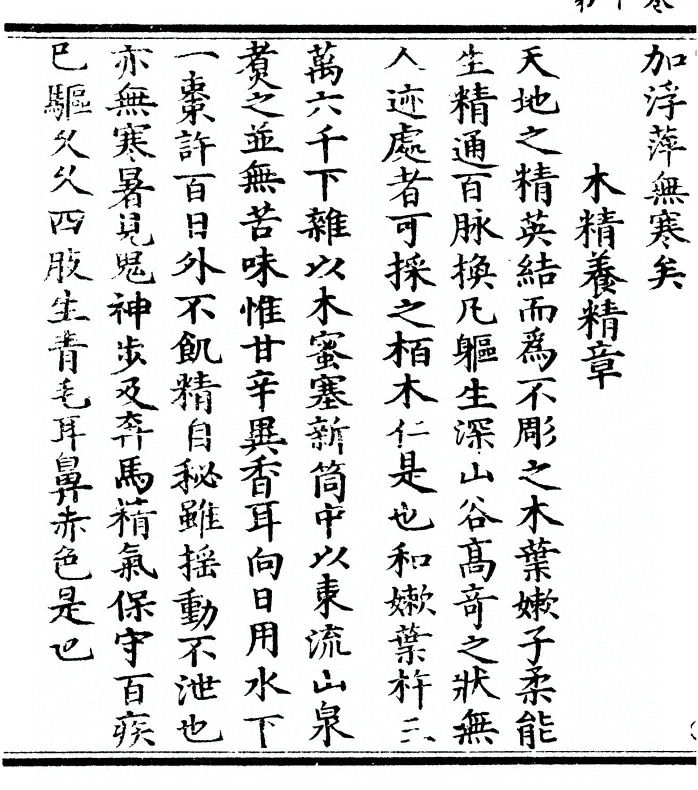 加浮萍無寒矣
木精養精章
天地之精英結而爲不彫之木葉嫰子柔能
生精通百脉換凡軀生深山谷髙竒之狀無
人迹處者可採之栢木仁是也和嫰葉杵三
萬六千下雜以木蜜塞新筒中以東流山泉
煑之並無苦味惟甘辛異香耳向日用水下
一棗許百日外不飢精自秘雖揺動不泄也
亦無寒暑見鬼神步及奔馬精氣保守百疾
已驅久久四肢生青毛耳鼻赤色是也